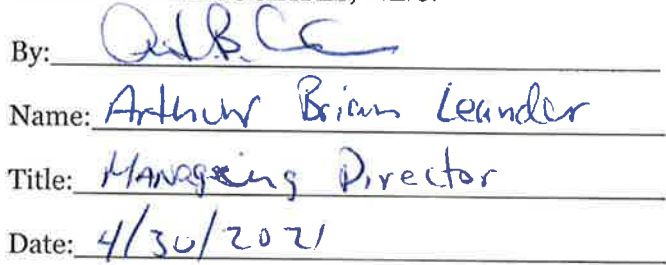 By:
Name: Arthur Brian Leander
Title: Managing Director
Date: 4/30/2021